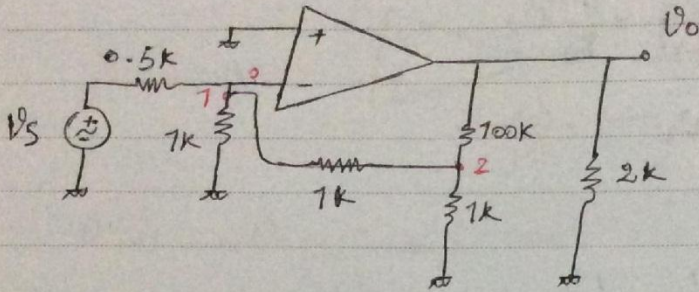 Vo
+
0.5k
0
-
1
Vs
+
1k
100k
2
1k
1k
2k